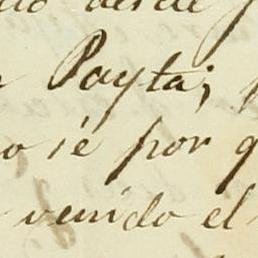 desde
Payta;
sé por
venido el